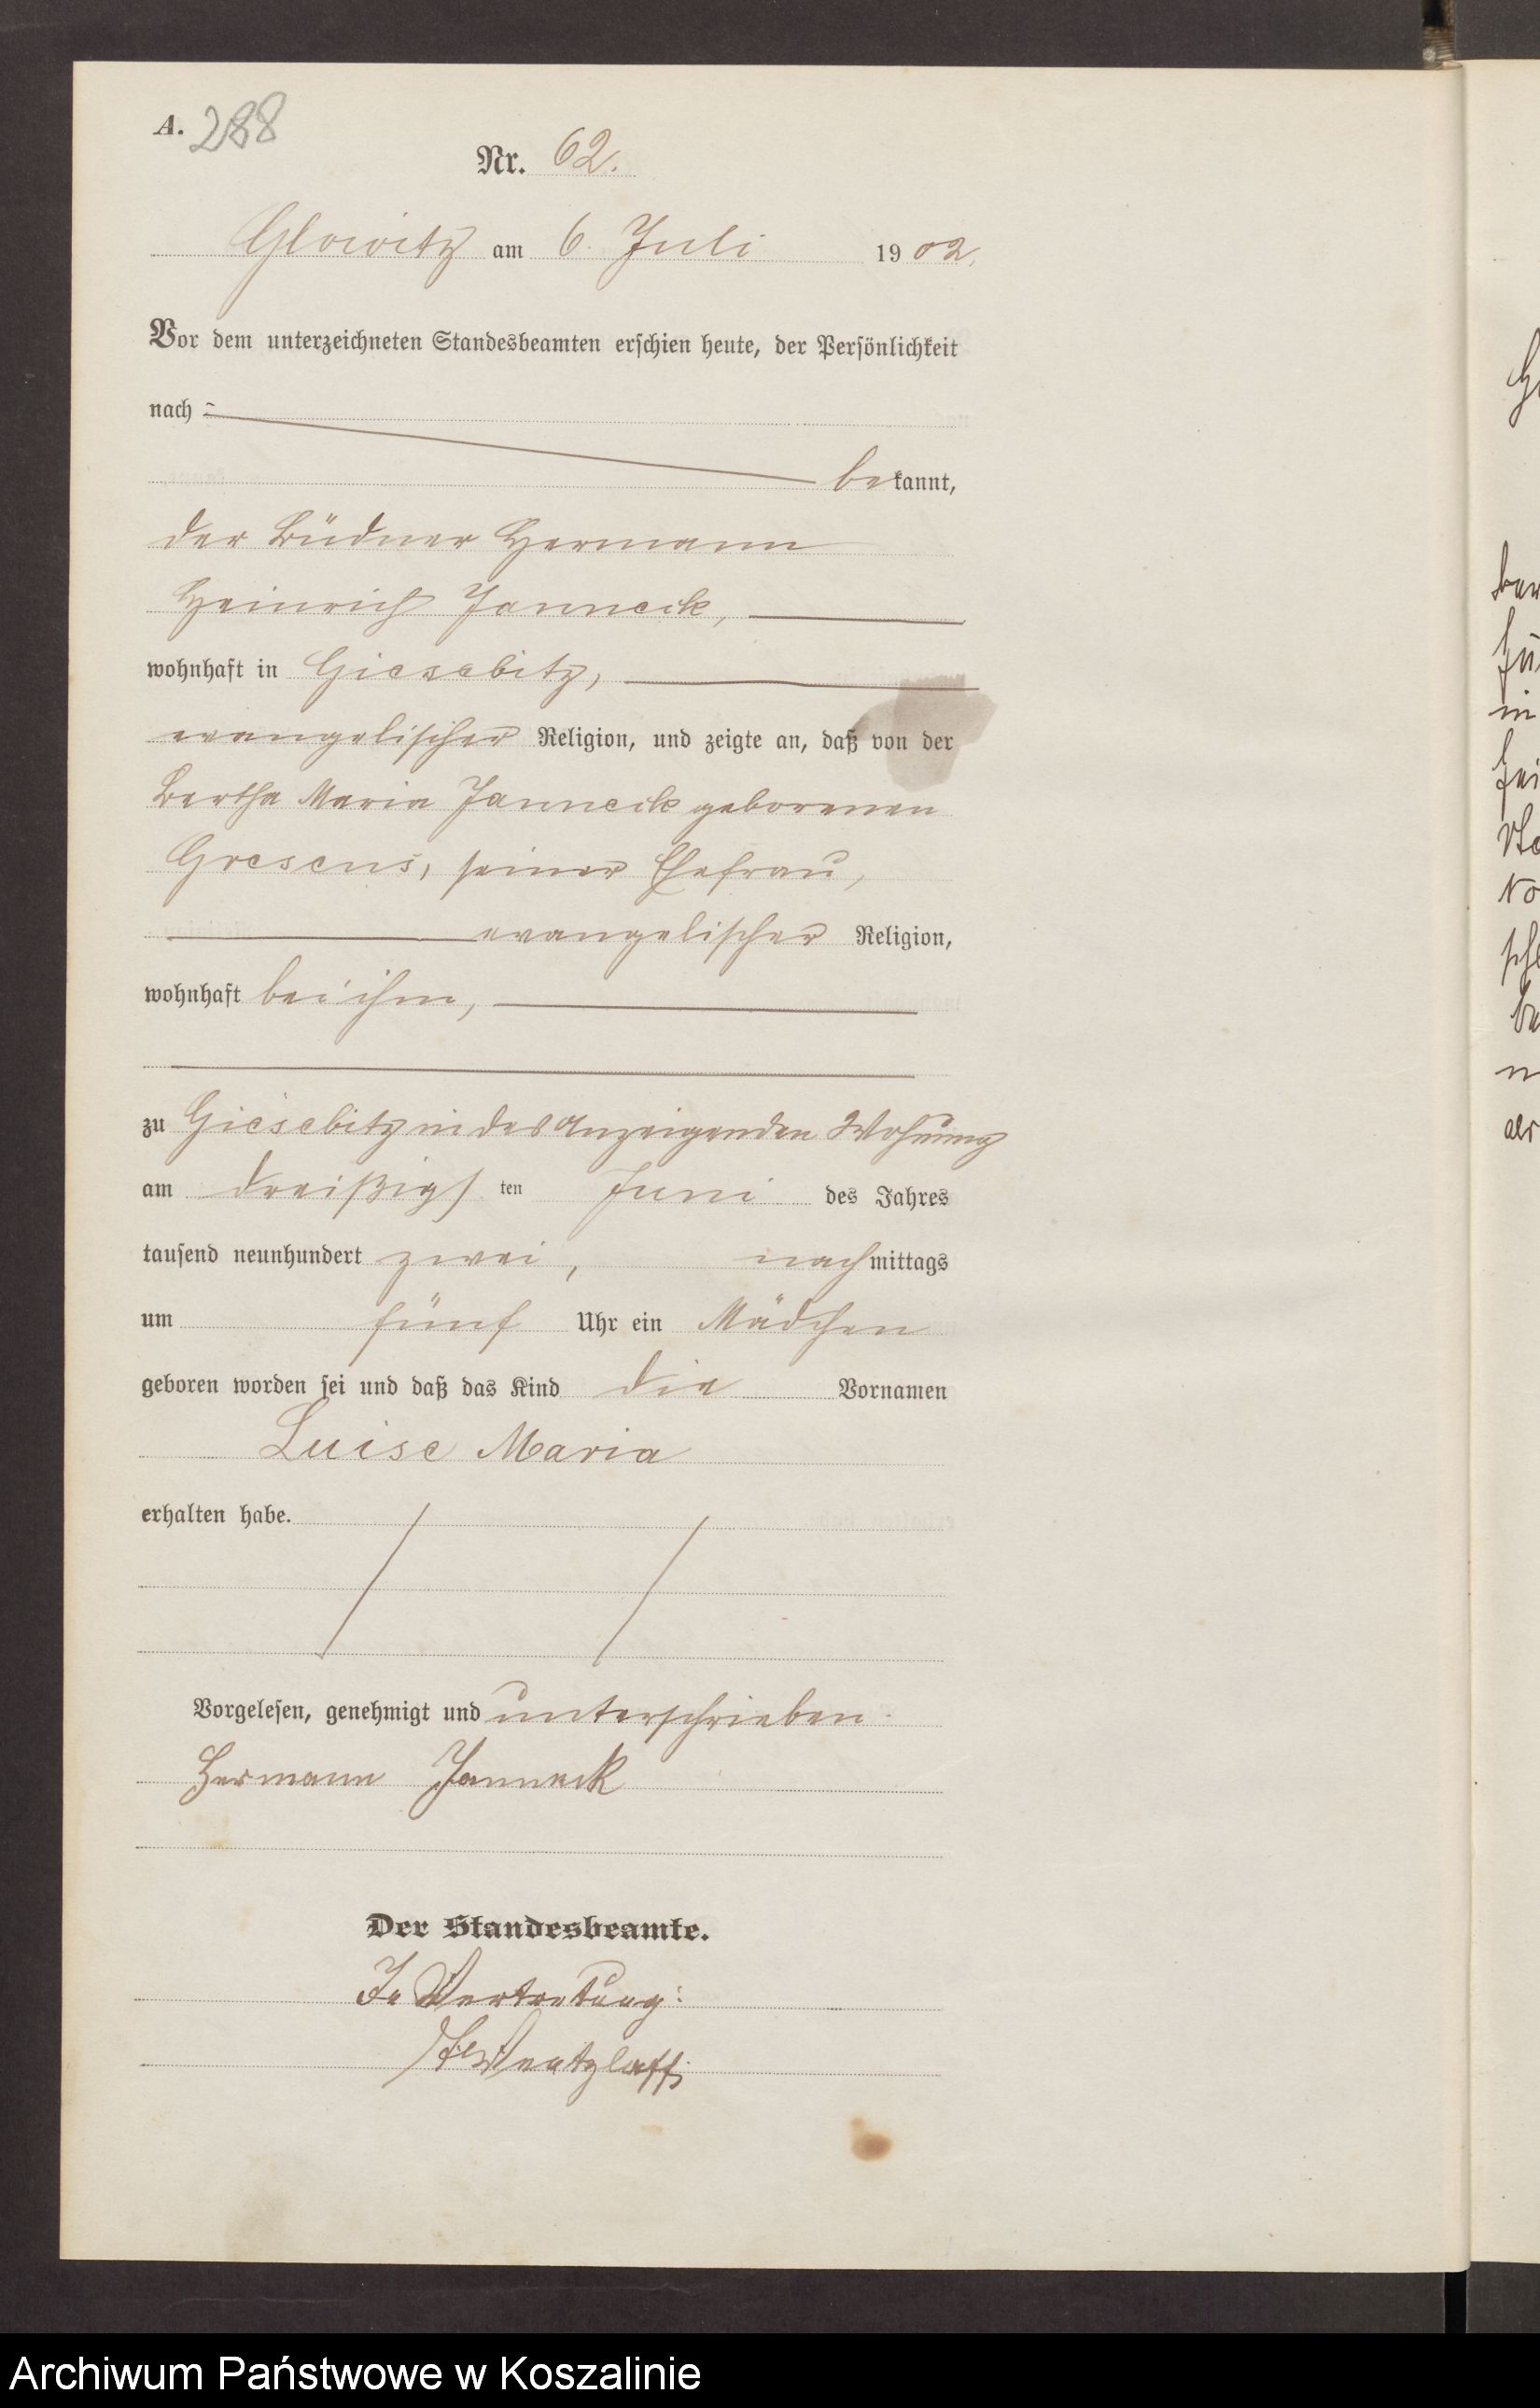 A. 288
Nr. 62.
Glowitz am 6. Juli 1902.
Vor dem unterzeichneten Standesbeamten erschien heute, der Persönlichkeit
nach
bekannt,
der Büdner Hermann
Heinrich Janneck,
wohnhaft in Giesebitz,
evangelischer Religion, und zeigte an, daß von der
Bertha Maria Janneck geborenen
Gresens, seiner Ehefrau,
evangelischer Religion,
wohnhaft bei ihm,
zu Giesebitz in des Anzeigenden Wohnung
am dreißigsten Juni des Jahres
tausend neunhundert zwei, nachmittags
um fünf Uhr ein Mädchen
geboren worden sei und daß das Kind die Vornamen
Luise Maria
erhalten habe.
Vorgelesen, genehmigt und unterschrieben.
Hermann Janneck
Der Standesbeamte.
In Vertretung:
Wentzlaff
Archiwum Państwowe w Koszalinie